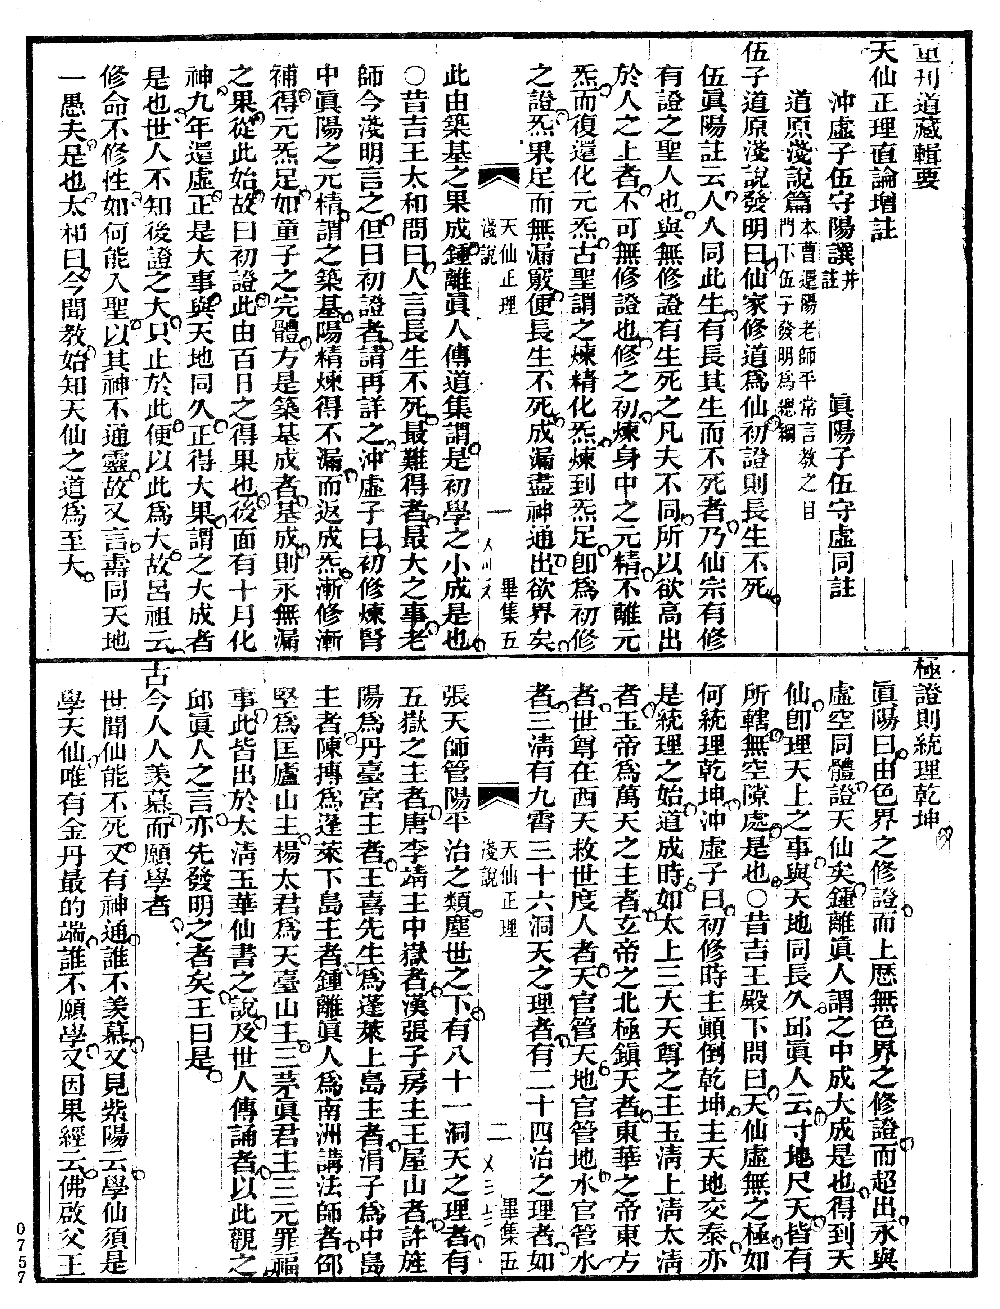 重刊道藏輯要
天仙正理直論增註
沖虛子伍守陽譔并註　眞陽子伍守虛同註
道原淺說篇 本曹還陽老師平常言教之目門下伍子發明爲總綱
伍子道原淺說發明曰仙家修道爲仙初證則長生不死
伍眞陽註云人人同此生有長其生而不死者乃仙宗有修
有證之聖人也與無修證有生死之凡夫不同所以欲高出
於人之上者不可無修證也修之初煉身中之元精不離元
炁而復還化元炁古聖謂之煉精化炁煉到炁足卽爲初修
之證炁果足而無漏竅便長生不死成漏盡神通出欲界矣
天仙正理
淺說
一
畢集五
此由築基之果成鍾離眞人傳道集謂是初學之小成是也
○昔吉王太和問曰人言長生不死最難得者最大之事老
師今淺明言之但曰初證者請再詳之沖虛子曰初修煉腎
中眞陽之元精謂之築基陽精煉得不漏而返成炁漸修漸
補得元炁足如童子之完體方是築基成者基成則永無漏
之果從此始故曰初證此由百日之得果也後面有十月化
神九年還虛正是大事與天地同久正得大果謂之大成者
是也世人不知後證之大只止於此便以此爲大故呂祖云
修命不修性如何能入聖以其神不通靈故又言壽同天地
一愚夫是也太和曰今聞教始知天仙之道爲至大
極證則統理乾坤
眞陽曰由色界之修證而上歷無色界之修證而超出永與
虛空同體證天仙矣鍾離眞人謂之中成大成是也得到天
仙卽理天上之事與天地同長久邱眞人云寸地尺天皆有
所轄無空隙處是也○昔吉王殿下問曰天仙虛無之極如
何統理乾坤沖虛子曰初修時主顚倒乾坤主天地交泰亦
是統理之始道成時如太上三大天尊之主玉淸上淸太淸
者玉帝爲萬天之主者玄帝之北極鎭天者東華之帝東方
者世尊在西天救世度人者天官管天地官管地水官管水
者三淸有九霄三十六洞天之理者有二十四治之理者如
天仙正理
淺說
二
畢集五
張天師管陽平治之類塵世之下有八十一洞天之理者有
五嶽之主者唐李靖主中嶽者漢張子房主王屋山者許旌
陽爲丹臺宮主者王喜先生爲蓬萊上島主者涓子爲中島
主者陳摶爲蓬萊下島主者鍾離眞人爲南洲講法師者邵
堅爲匡廬山主楊太君爲天臺山主三茅眞君主三元罪福
事此皆出於太淸玉華仙書之說及世人傳誦者以此觀之
邱眞人之言亦先發明之者矣王曰是
古今人人羨慕而願學者
世聞仙能不死又有神通誰不羨慕又見紫陽云學仙須是
學天仙唯有金丹最的端誰不願學又因果經云佛啟父王
0757